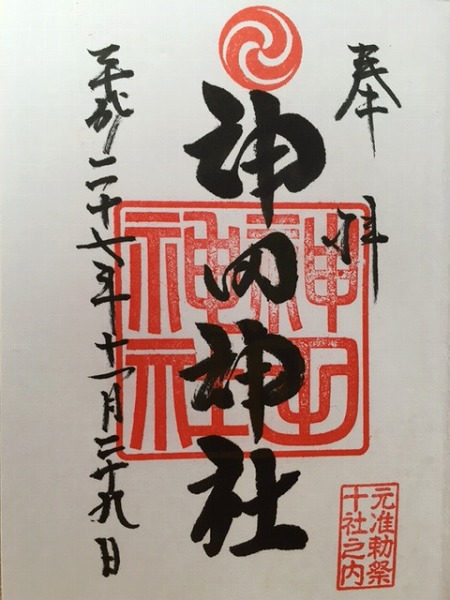 奉拝
神田神社
神田神社
平成二十七年十一月二十九日
元准勅祭
十社之内